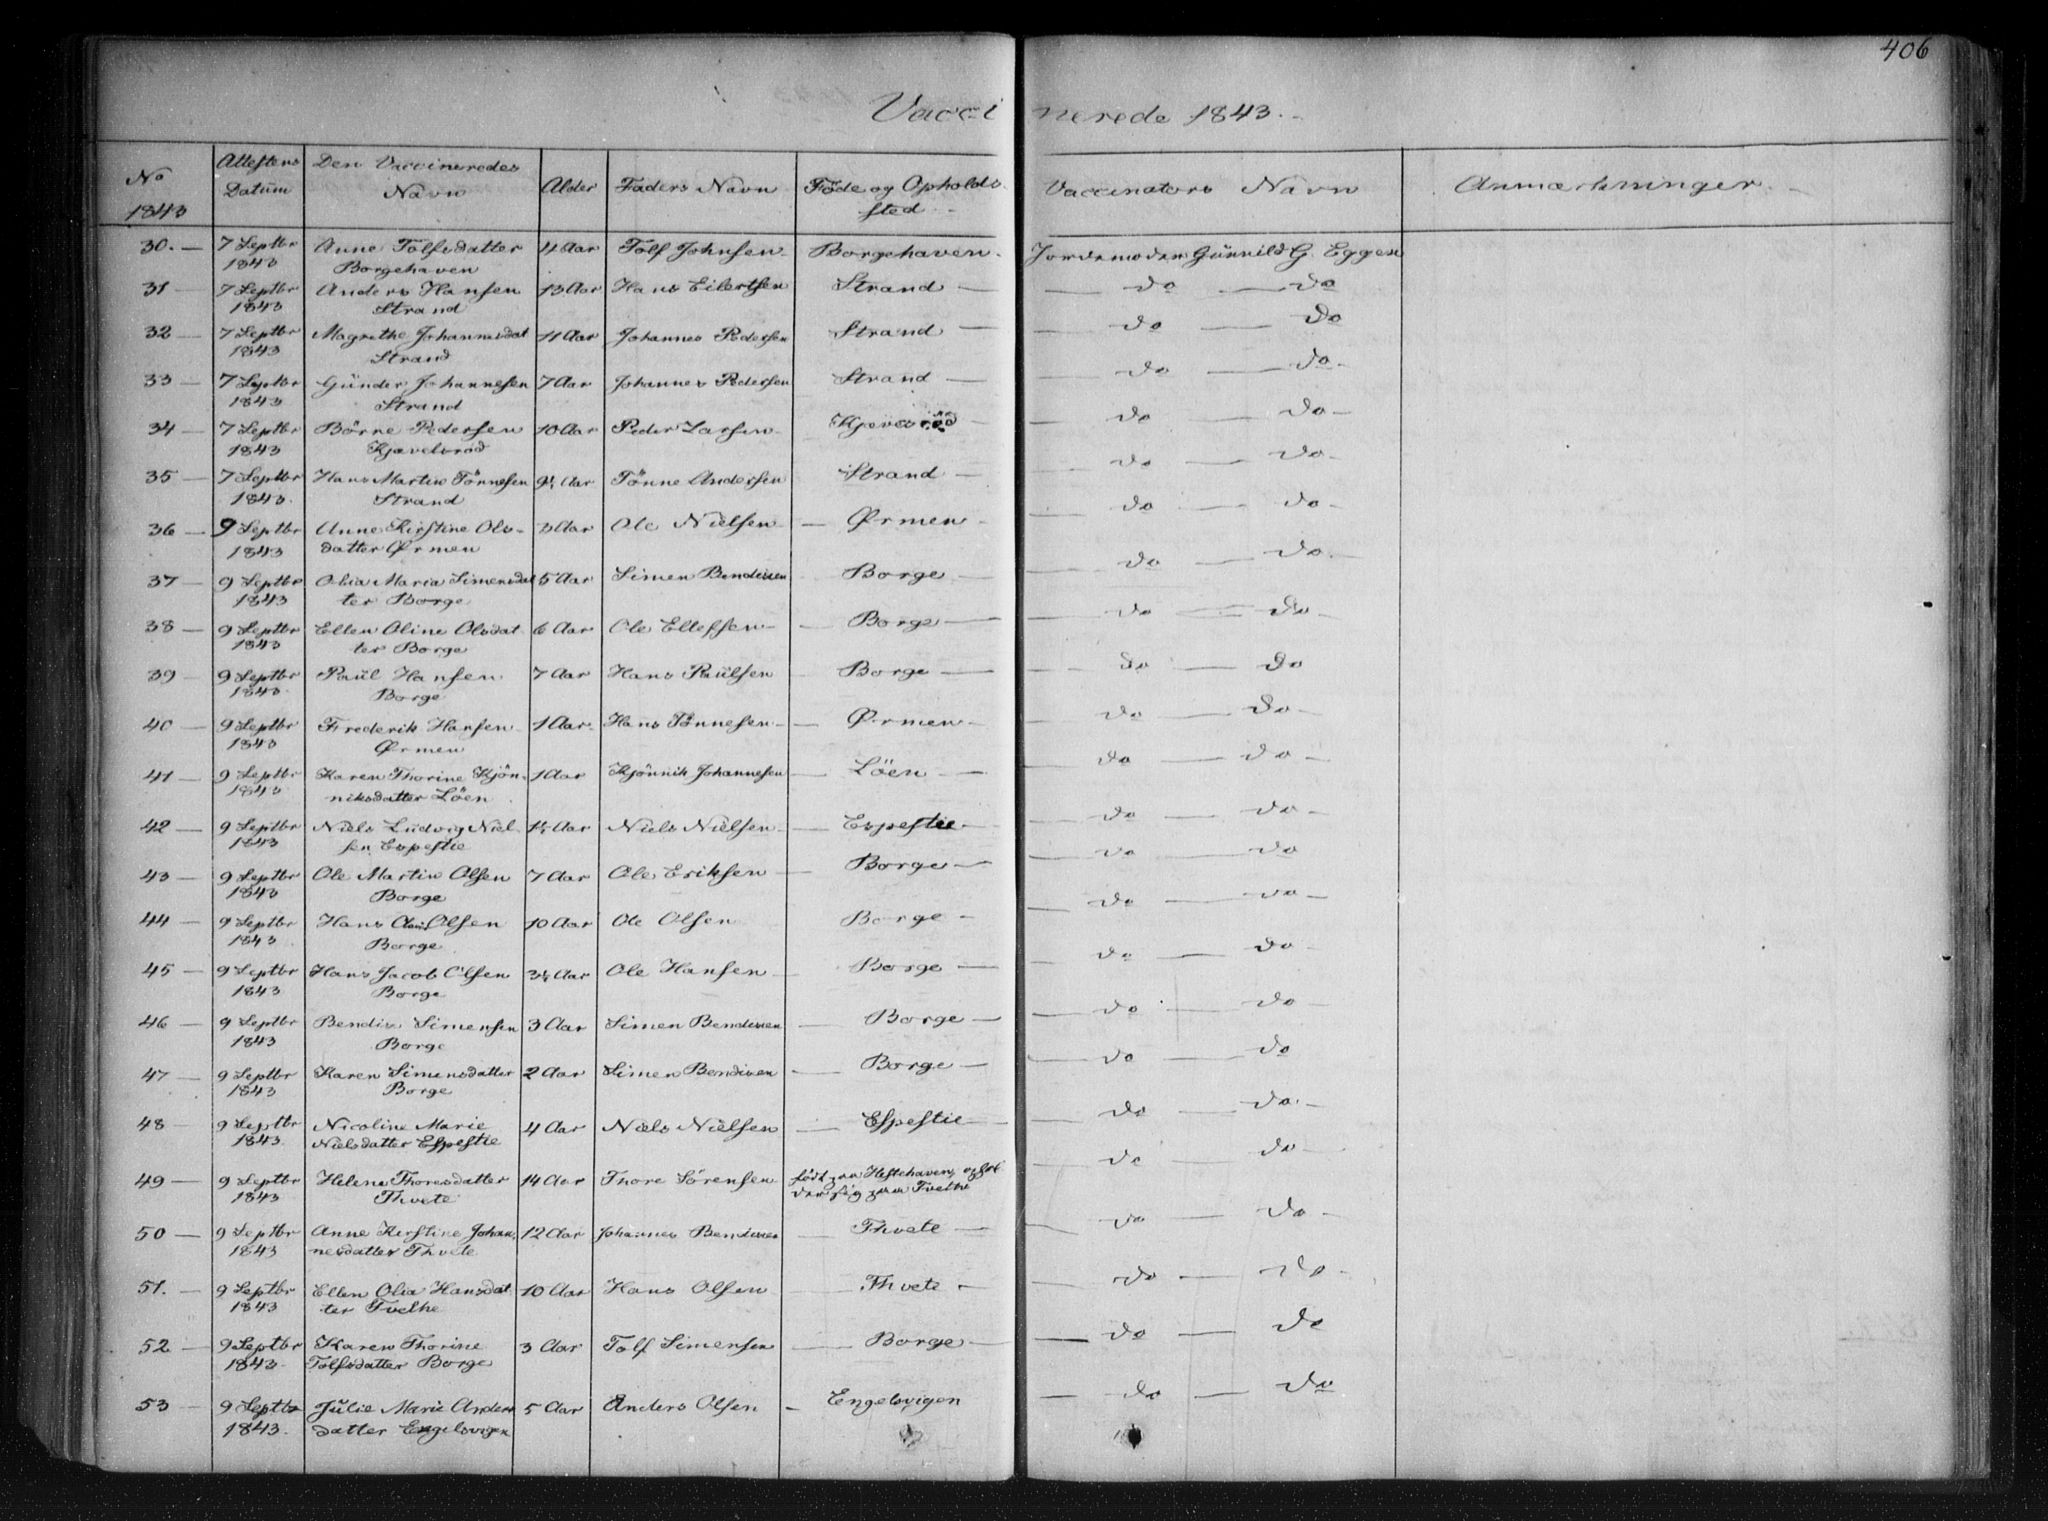 406
Vacci nerede 1843.
No 1843 | Attesters Datum | Den Vaccineredes Navn | Alder | Faders Navn | Føde og Opholdssted | Vaccinators Navn | Anmærkninger.
30. — 7 Septbr 1843 Anne Tolfsdatter Borgehaven 4 Aar Tolf Johnsen Borgehaven. Jordemoder Günnild G. Eggen
31 — 7 Septbr 1843 Anders Hansen Strand 13 Aar Hans Eilertsen Strand — do — do
32 — 7 Septbr 1843 Magrethe Johannesdat Strand 11 Aar Johannes Pedersen Strand — do — do
33 — 7 Septbr 1843 Günder Johannesen Strand 7 Aar Johannes Pedersen Strand — do — do
34 — 7 Septbr 1843 Börne Pedersen Kjævelsröd 10 Aar Peder Larsen — do — do
35 — 7 Septbr 1843 Hans Martin Tönnesen Strand Aar Tönne Andersen Strand — do — do
36 — 9 Septbr 1843 Anne Kirstine Olsdatter Ørmen 3 Aar Ole Nielsen — Ørmen — do — do
37 — 9 Septbr 1843 Olia Maria Simensdatter Borge 5 Aar Simen Bendixen Borge — do — do
38 — 9 Septbr 1843 Ellen Oline Olsdatter Borge 6 Aar Ole Ellefsen — Borge — do — do
39 — 9 Septbr 1843 Paül Hansen Borge 7 Aar Hans Paülsen — Borge — do — do
40 — 9 Septbr 1843 Frederik Hansen Ørmen 1 Aar Hans Tönnesen — Ørmen — do — do
41 — 9 Septbr 1843 Karen Thorine Kjönniksdatter Löen 1 Aar Kjönnik Johannesen — Löen — do — do
42 — 9 Septbr 1843 Niels Lüdvig Nielsen Espestie 1½ Aar Niels Nielsen — Espestie — do — do
43 — 9 Septbr 1843 Ole Martin Olsen Borge 7 Aar Ole Eriksen — Borge — do — do
44 — 9 Septbr 1843 Hans Olsen Borge 10 Aar Ole Olsen Borge — do — do
45 — 9 Septbr 1843 Hans Jacob Olsen Borge 3½ Aar Ole Hansen — Borge — do — do
46 — 9 Septbr 1843 Bendix Simensen Borge 3 Aar Simen Bendixen — Borge — do — do
47 — 9 Septbr 1843 Karen Simensdatter Borge 2 Aar Simen Bendixen — Borge — do — do
48 — 9 Septbr 1843 Nicoline Marie Nielsdatter Espestie 4 Aar Niels Nielsen — Espestie — do — do
49 — 9 Septbr 1843 Helene Thoresdatter Thvete 14 Aar Thore Sörensen födt paa Hestehaven, ophol der sig paa Tvethe — do — do
50 — 9 Septbr 1843 Anne Kirstine Johannesdatter Thvete 12 Aar Johannes Bendixen — Thvete — do — do
51. — 9 Septbr 1843 Ellen Olia Hansdatter Tvethe 10 Aar Hans Olsen — Thvete — do — do
52 — 9 Septbr 1843 Karen Thorine Tolfsdatter Borge 3 Aar Tolf Simensen — Borge — do — do
53 — 9 Septbr 1843. Jülie Marie Anders datter Engelsvigen 5 Aar Anders Olsen — Engelsvigen — do — do